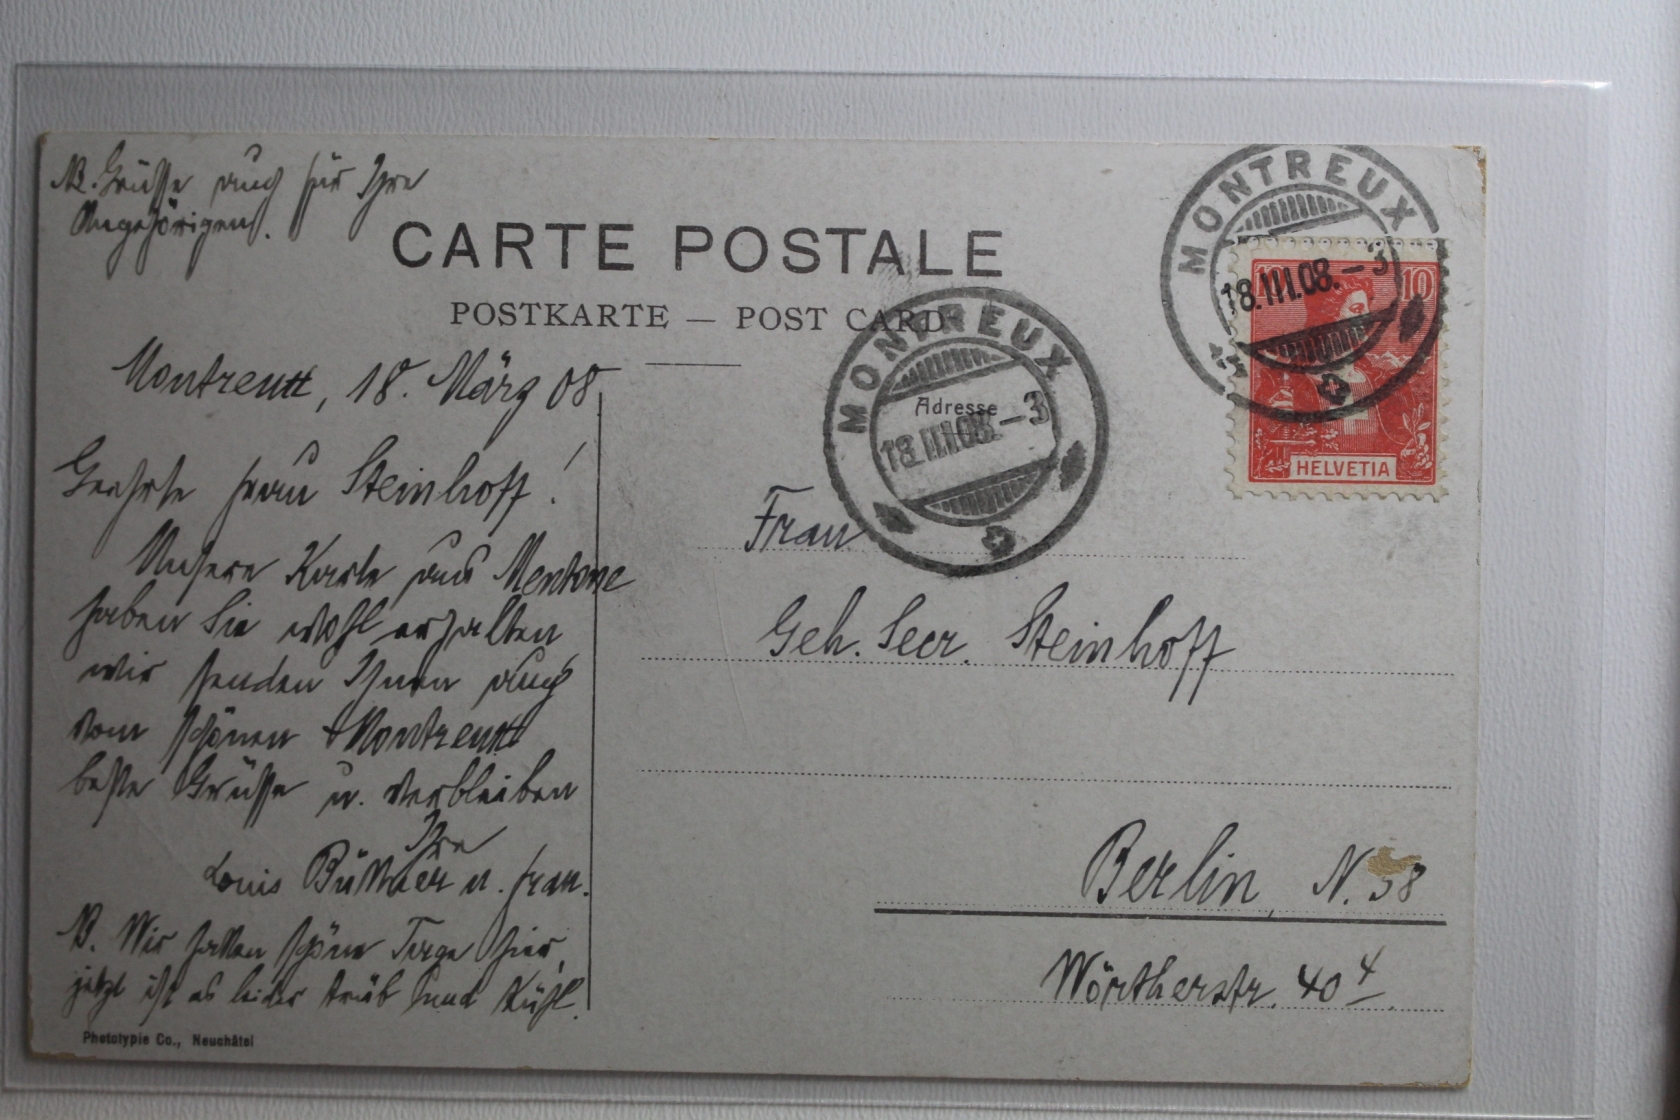 NB. Grüsse auch für Ihre
Angehörigen.
CARTE POSTALE
POSTKARTE — POST CARD
Montreux, 18. März 08
Geehrte Frau Steinhoff!
Unsere Karte aus Mentone
haben Sie wohl erhalten
wir senden Ihnen auch
vom schönen Montreux
beste Grüsse u. verbleiben
Ihre
Louis Büttner u. Frau.
NB. Wir hatten schöne Tage hier,
jetzt ist es leider trüb und kühl.
Phototypie Co., Neuchâtel
MONTREUX
18.III.08.–3
10
10
HELVETIA
MONTREUX
18.III.08.–3
Adresse
Frau
Geh. Secr. Steinhoff
Berlin, N. 58
Wörtherstr. 40 4